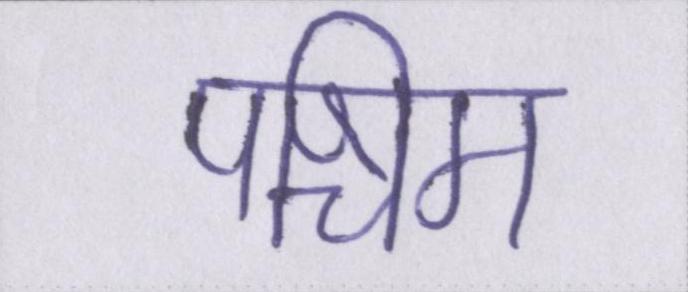 पश्चिम